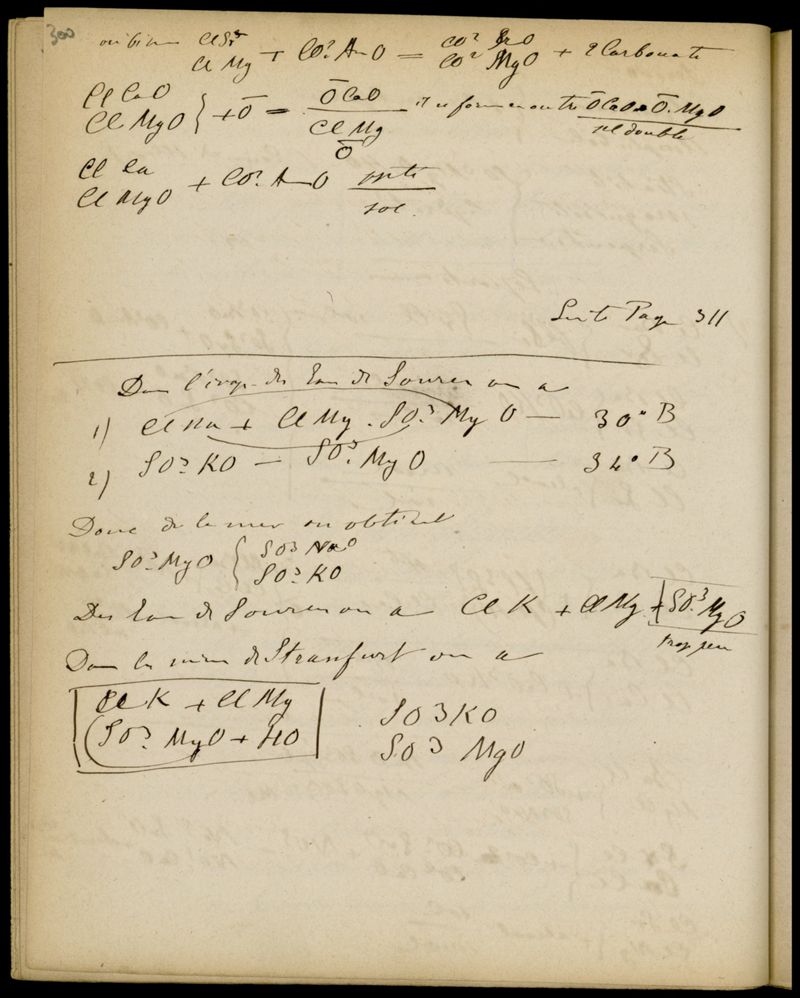 300
ou bien Cl Sr
Cl Mg + CO² AmO = CO² SrO
CO² MgO + 2 Carbonate
Cl CaO
Cl MgO } + O̅ = O̅ CaO
Cl Mg
O̅
O̅ CaO O̅. MgO
sel double
Cl Ca
Cl MgO + CO² AmO
sol.
Suite Page 311
Dans des Eau de Source on a
1) Cl Na + Cl Mg . SO³ MgO — 30° B
2) SO³ KO — SO³. MgO — 34° B
Donc de la mer on obtient
SO³ MgO { SO³ NaO
SO³ KO
Des Eau de Source on a Cl K + Cl Mg + SO³ MgO
trop peu
Dans les mines de Strassfurt on a
Cl K + Cl Mg
SO³ MgO + HO
SO3 KO
SO3 MgO